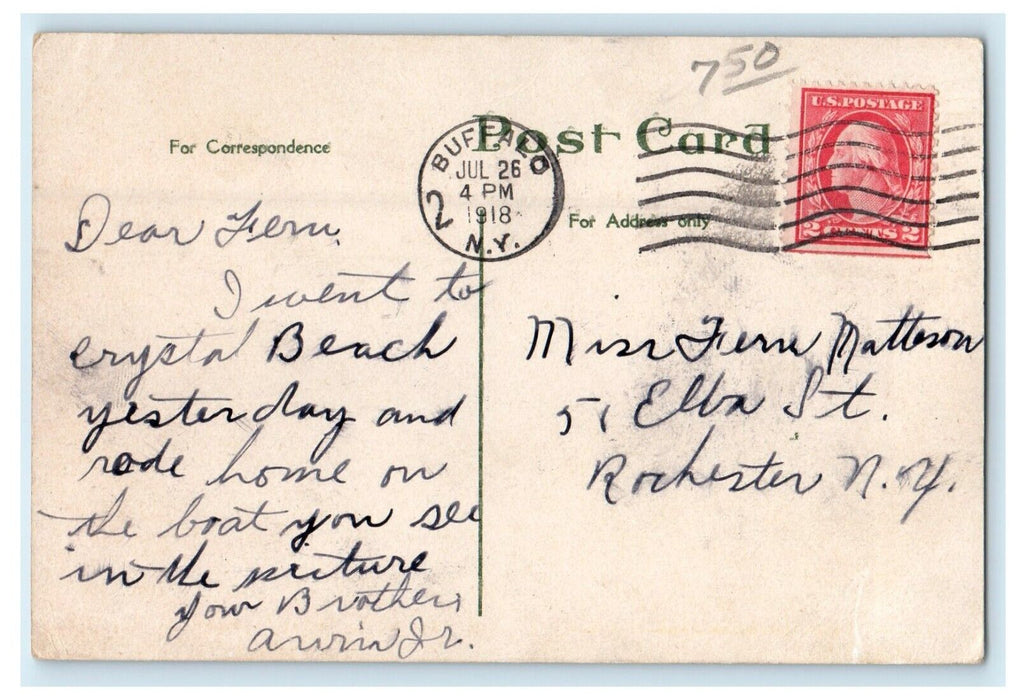 750
Post Card
For Correspondence
BUFFALO
JUL 26
4 PM
1918
N.Y.
2
U.S. POSTAGE
2 CENTS 2
For Address only
Dear Fern,
I went to
crystal Beach
yesterday and
rode home on
the boat you see
in the picture
your Brother,
Jr.
Miss Fern Matteson
51 Elba St.
Rochester N.Y.